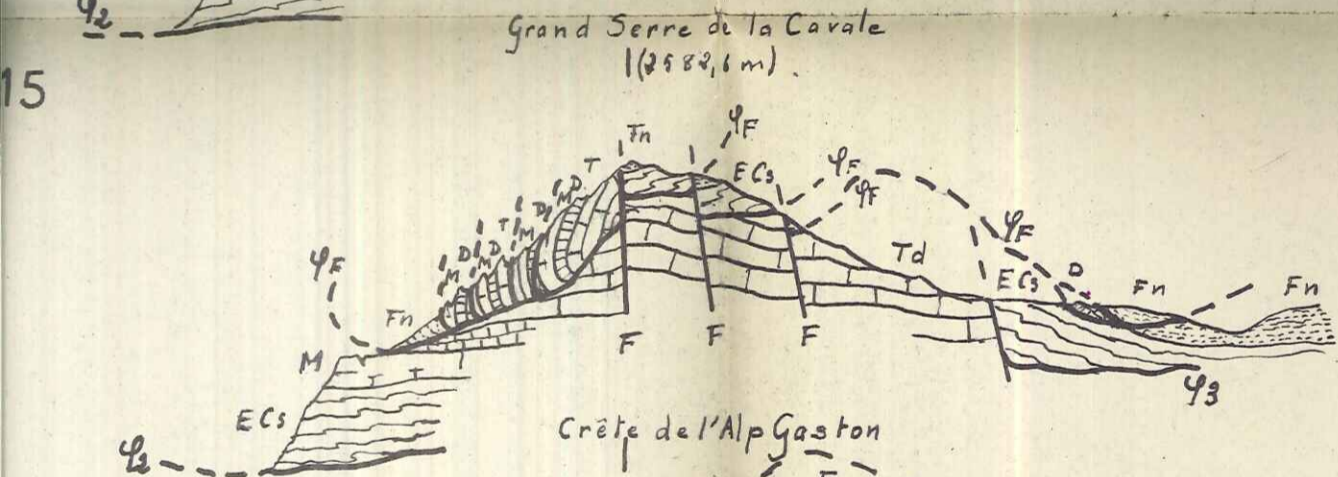 φ2
Grand Serre de la Cavale
(2582,6 m).
15
Fn
φF
T
ECs
φF
D
M
D
φF
T
D
M
M
D
M
φF
Td
φF
ECs
D
Fn
Fn
Fn
M
F
F
F
φ3
ECs
Crête de l'Alp Gaston
φ2
F